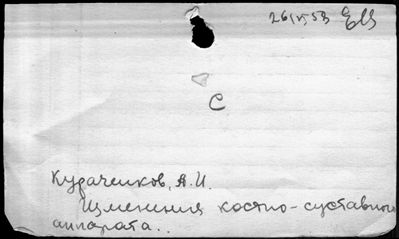 26/VI 53
С
Кураченков, А.И.
Изменения костно-суставного
аппарата..